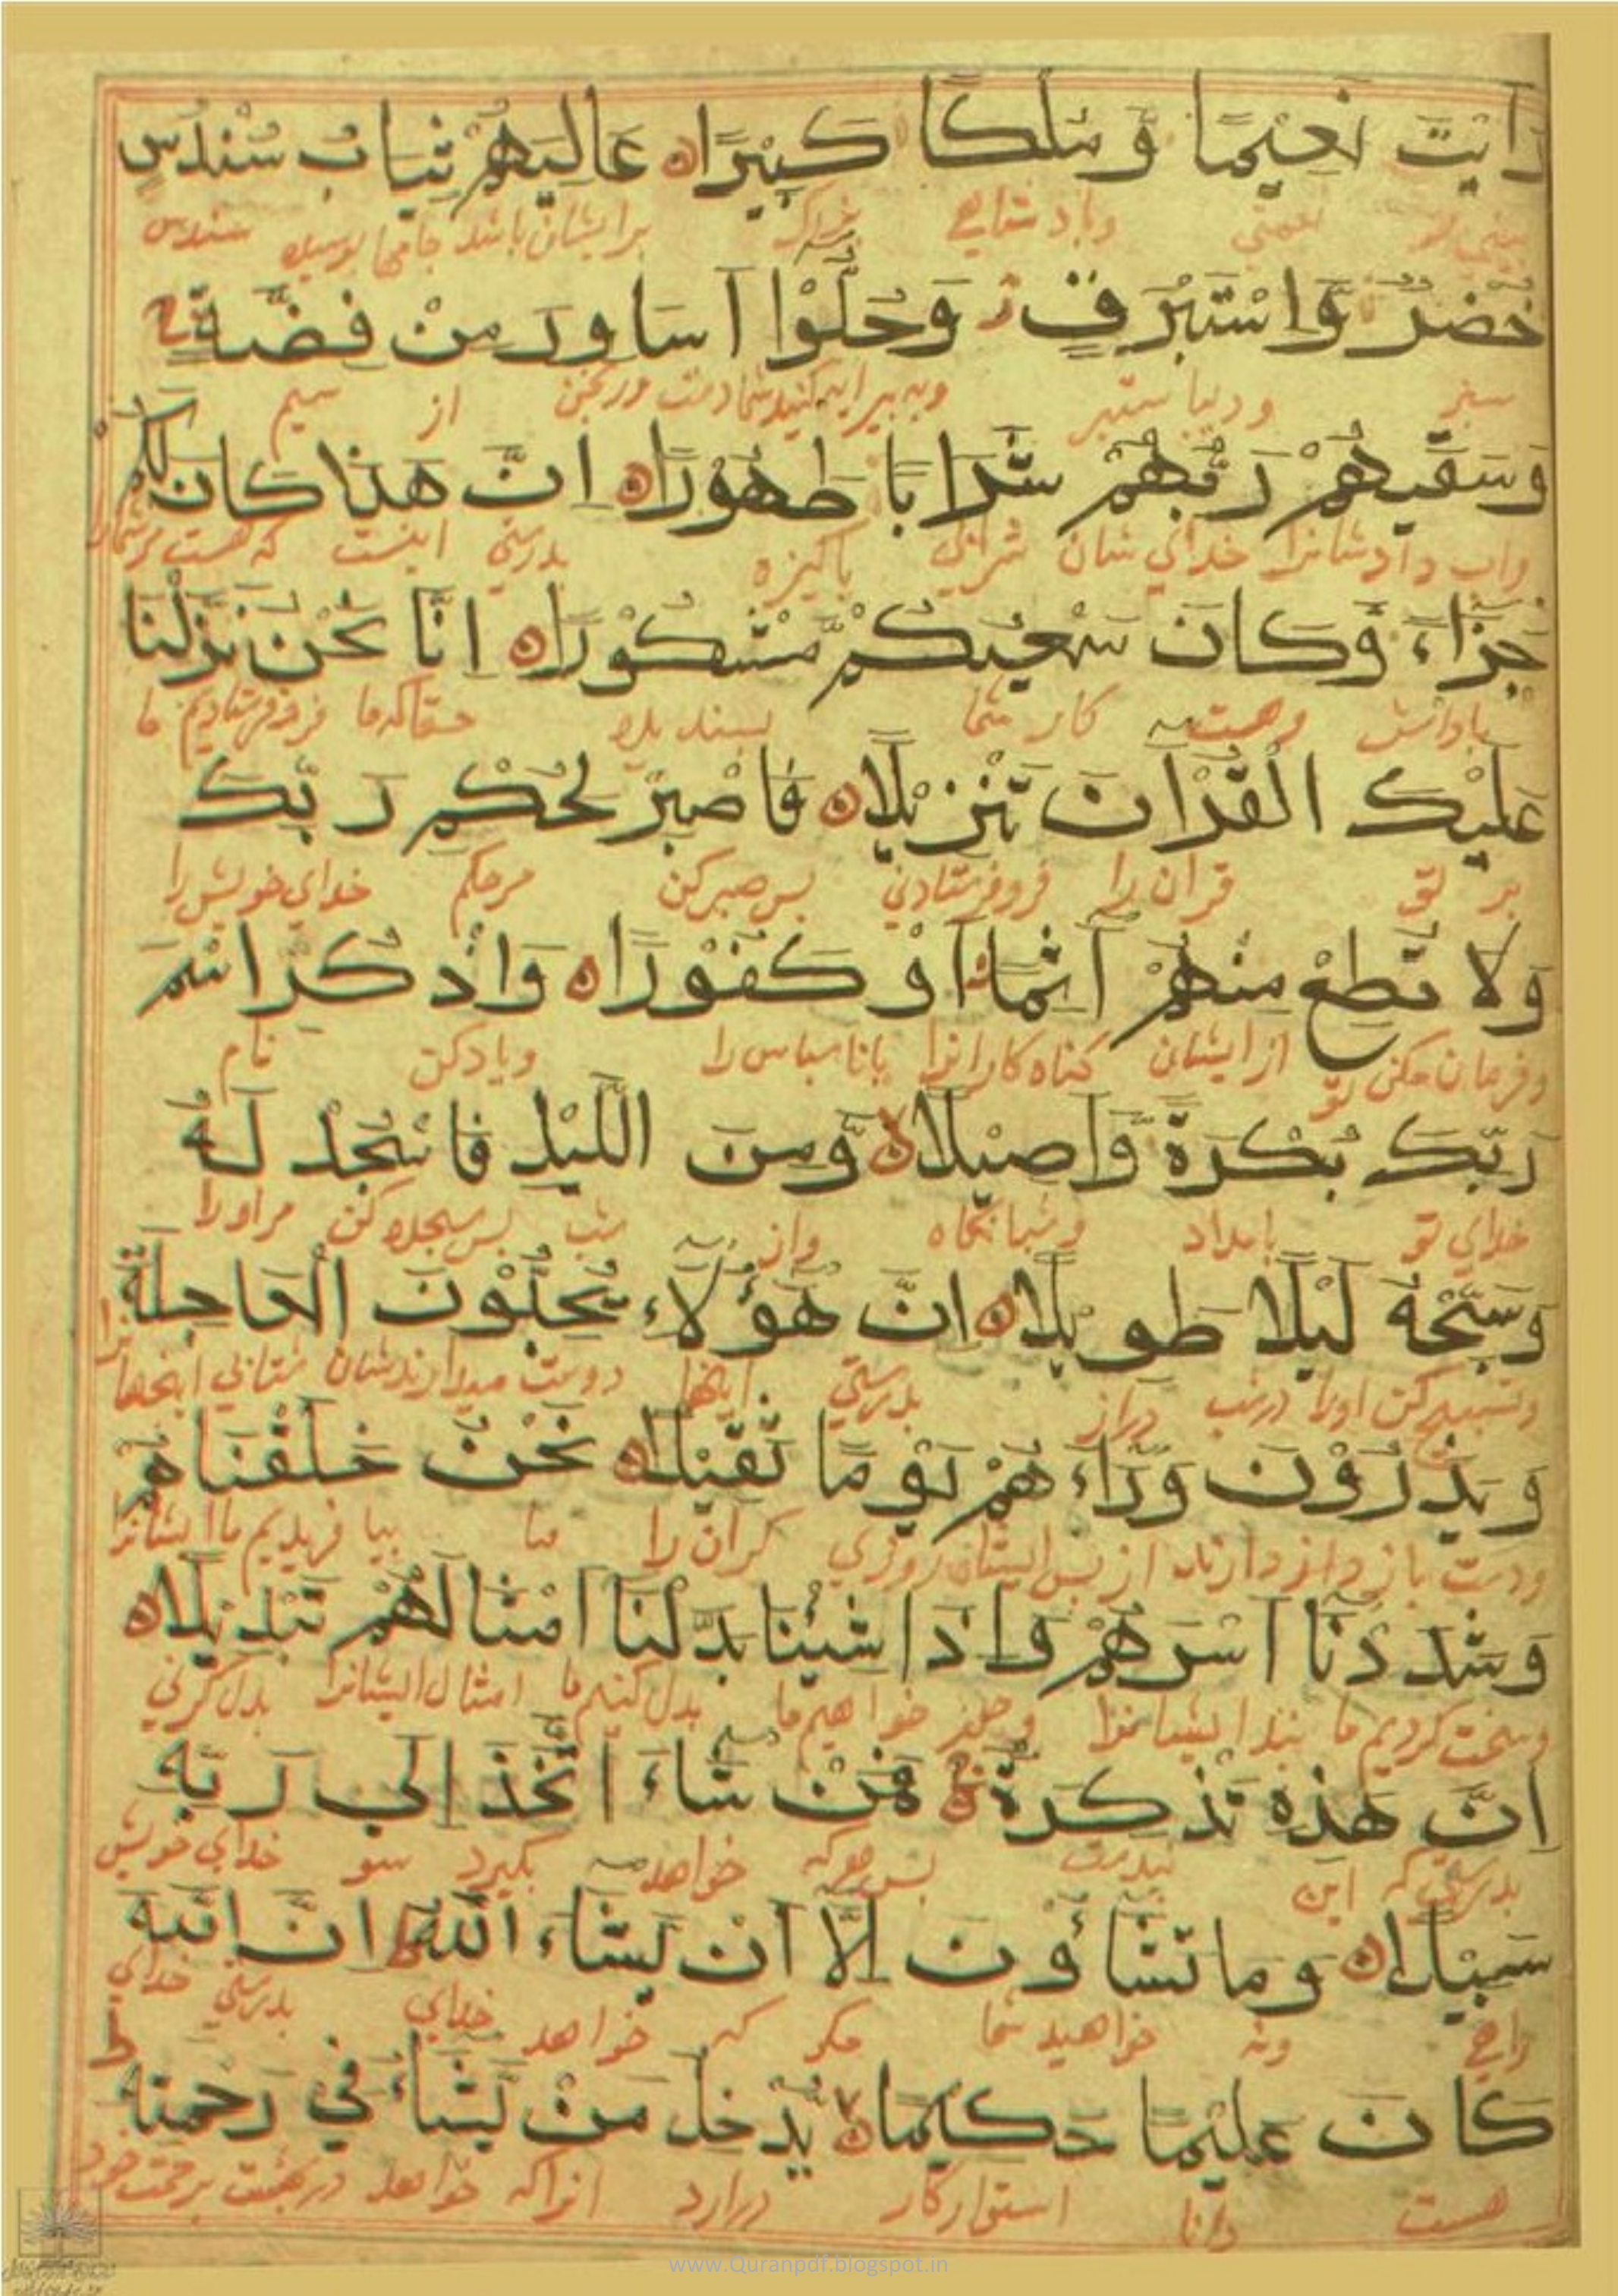 رَاَيْتَ نَعِيْمًا وَّمُلْكًا كَبِيْرًا ه عَالِيَهُمْ ثِيَابُ سُنْدُسٍ
نعمتي وبادشاهي بزرگ برایشان باشد جامها سندس
خُضْرٌ وَّاِسْتَبْرَقٌ ز وَحُلُّوْا اَسَاوِرَ مِنْ فِضَّةٍ ج
سبز ودیبا ستبر از سیم
وَسَقٰيهُمْ رَبُّهُمْ شَرَابًا طَهُوْرًا ه اِنَّ هٰذَا كَانَ لَكُمْ
واب داد شانرا خدای شان شرابی باکیزه بدرستی اینست که هست
جَزَاءً وَّكَانَ سَعْيُكُمْ مَّشْكُوْرًا ه اِنَّا نَحْنُ نَزَّلْنَا
باداش وهست کار شما بسندیده حقاکه ما فروفرستادیم ما
عَلَيْكَ الْقُرْاٰنَ تَنْزِيْلًا ه فَاصْبِرْ لِحُكْمِ رَبِّكَ
بر تو قران را فروفرستادنی بس صبر کن مرحکم خدای خویش را
وَلَا تُطِعْ مِنْهُمْ اٰثِمًا اَوْ كَفُوْرًا ه وَاذْكُرِ اسْمَ
وفرمان مکن تو از ایشان کناه کارانرا یا ناسباس را ویاد کن نام
رَبِّكَ بُكْرَةً وَّاَصِيْلًا ه وَّمِنَ اللَّيْلِ فَاسْجُدْ لَهُ
خدای تو بامداد وشبانکاه واز شب بس سجده کن مراورا
وَسَبِّحْهُ لَيْلًا طَوِيْلًا ه اِنَّ هٰؤُلَاءِ يُحِبُّوْنَ الْعَاجِلَةَ
وتسبیح کن اورا درشب دراز بدرستی اینها دوست میدارند
وَيَذَرُوْنَ وَرَاءَهُمْ يَوْمًا ثَقِيْلًا ه نَحْنُ خَلَقْنَاهُمْ
ودست باز از بس ایشان روزی کران را ما بیافریدیم ما ایشانرا
وَشَدَدْنَا اَسْرَهُمْ وَاِذَا شِئْنَا بَدَّلْنَا اَمْثَالَهُمْ تَبْدِيْلًا ه
وسخت کردیم ما بند ایشانرا وچون خواهیم ما بدل کنیم ما امثال ایشانرا بدل کردنی
اِنَّ هٰذِهٖ تَذْكِرَةٌ ج فَمَنْ شَاءَ اتَّخَذَ اِلٰى رَبِّهٖ
بدرستی که این بندست بس هرکه خواهد بگیرد سو خدای خویش
سَبِيْلًا ه وَمَا تَشَاؤُنَ اِلَّا اَنْ يَشَاءَ اللّٰهُ ط اِنَّ اللّٰهَ
راهی ونه خواهید شما مکر که خواهد خدای بدرستی خدای
كَانَ عَلِيْمًا حَكِيْمًا ه يُدْخِلُ مَنْ يَّشَاءُ فِيْ رَحْمَتِهٖ ط
هست دانا استوارکار درارد انراکه خواهد دربهشت برحمت خود
www.Quranpdf.blogspot.in